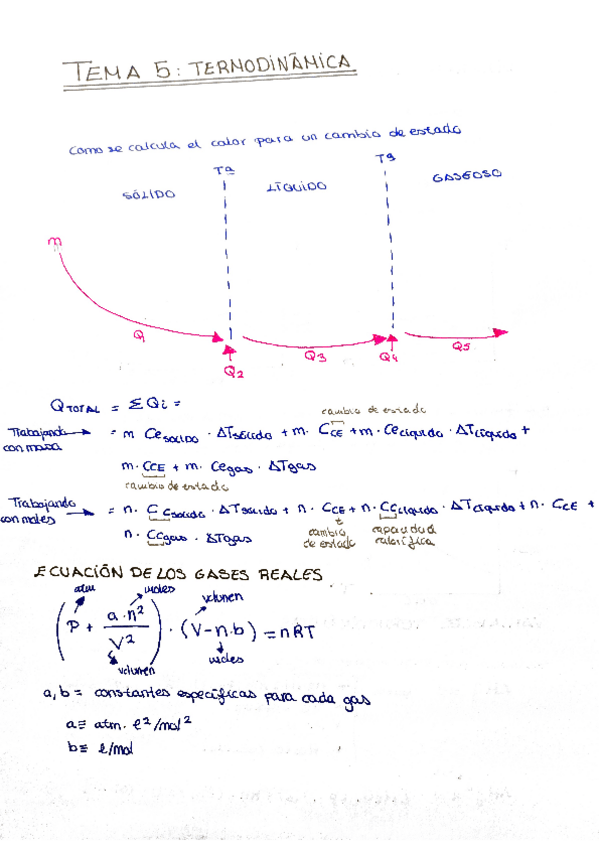 TEMA 5: TERMODINÁMICA
Como se calcula el calor para un cambio de estado
Ta
Tg
SÓLIDO
LÍQUIDO
GASEOSO
m
Q
Q2
Q3
Q4
Q5
QTOTAL = ΣQi =
cambio de estado
Trabajando con masa → = m Ce sólido · ΔTsólido + m · CCE + m · Ce líquido · ΔTlíquido +
m · CCE + m · Ce gas · ΔTgas
cambio de estado
Trabajando con moles → = n · C Csólido · ΔTsólido + n · CCE + n · CC líquido · ΔTlíquido + n · CCE +
n · CCgas · ΔTgas
cambio de estado
capacidad calorífica
ECUACIÓN DE LOS GASES REALES
atm
moles
volumen
(P + a·n²/V²) · (V-n·b) = nRT
volumen
moles
a, b = constantes específicas para cada gas
a ≡ atm. l²/mol²
b ≡ l/mol